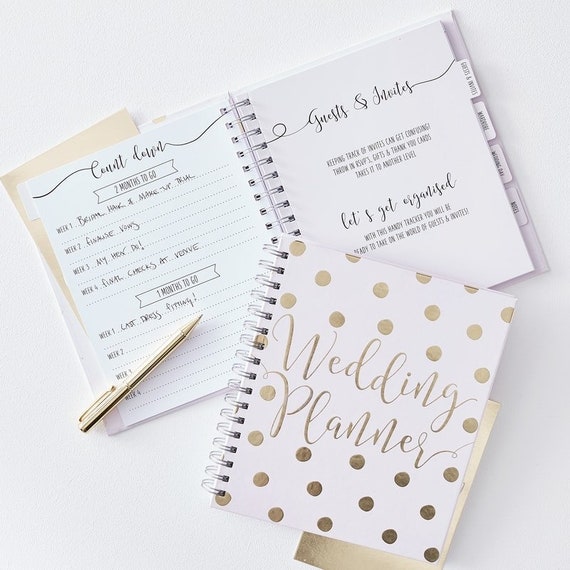 Count down
2 MONTHS TO GO
WEEK 1 BRIDAL HAIR & MAKE UP TRIAL
WEEK 2 FINALISE VOWS
WEEK 3 MY HEN DO!
WEEK 4 FINAL CHECKS AT VENUE
1 MONTHS TO GO
WEEK 1 LAST DRESS FITTING!
WEEK 2
WEEK 3
WEEK 4
Guests & Invites
KEEPING TRACK OF INVITES CAN GET CONFUSING!
THROW IN RSVP'S, GIFTS & THANK YOU CARDS
TAKES IT TO ANOTHER LEVEL
let's get organised
WITH THIS HANDY TRACKER YOU WILL BE
READY TO TAKE ON THE WORLD OF GUESTS & INVITES!
GUESTS & INVITES
WEDDING DAY
NOTES
Wedding
Planner